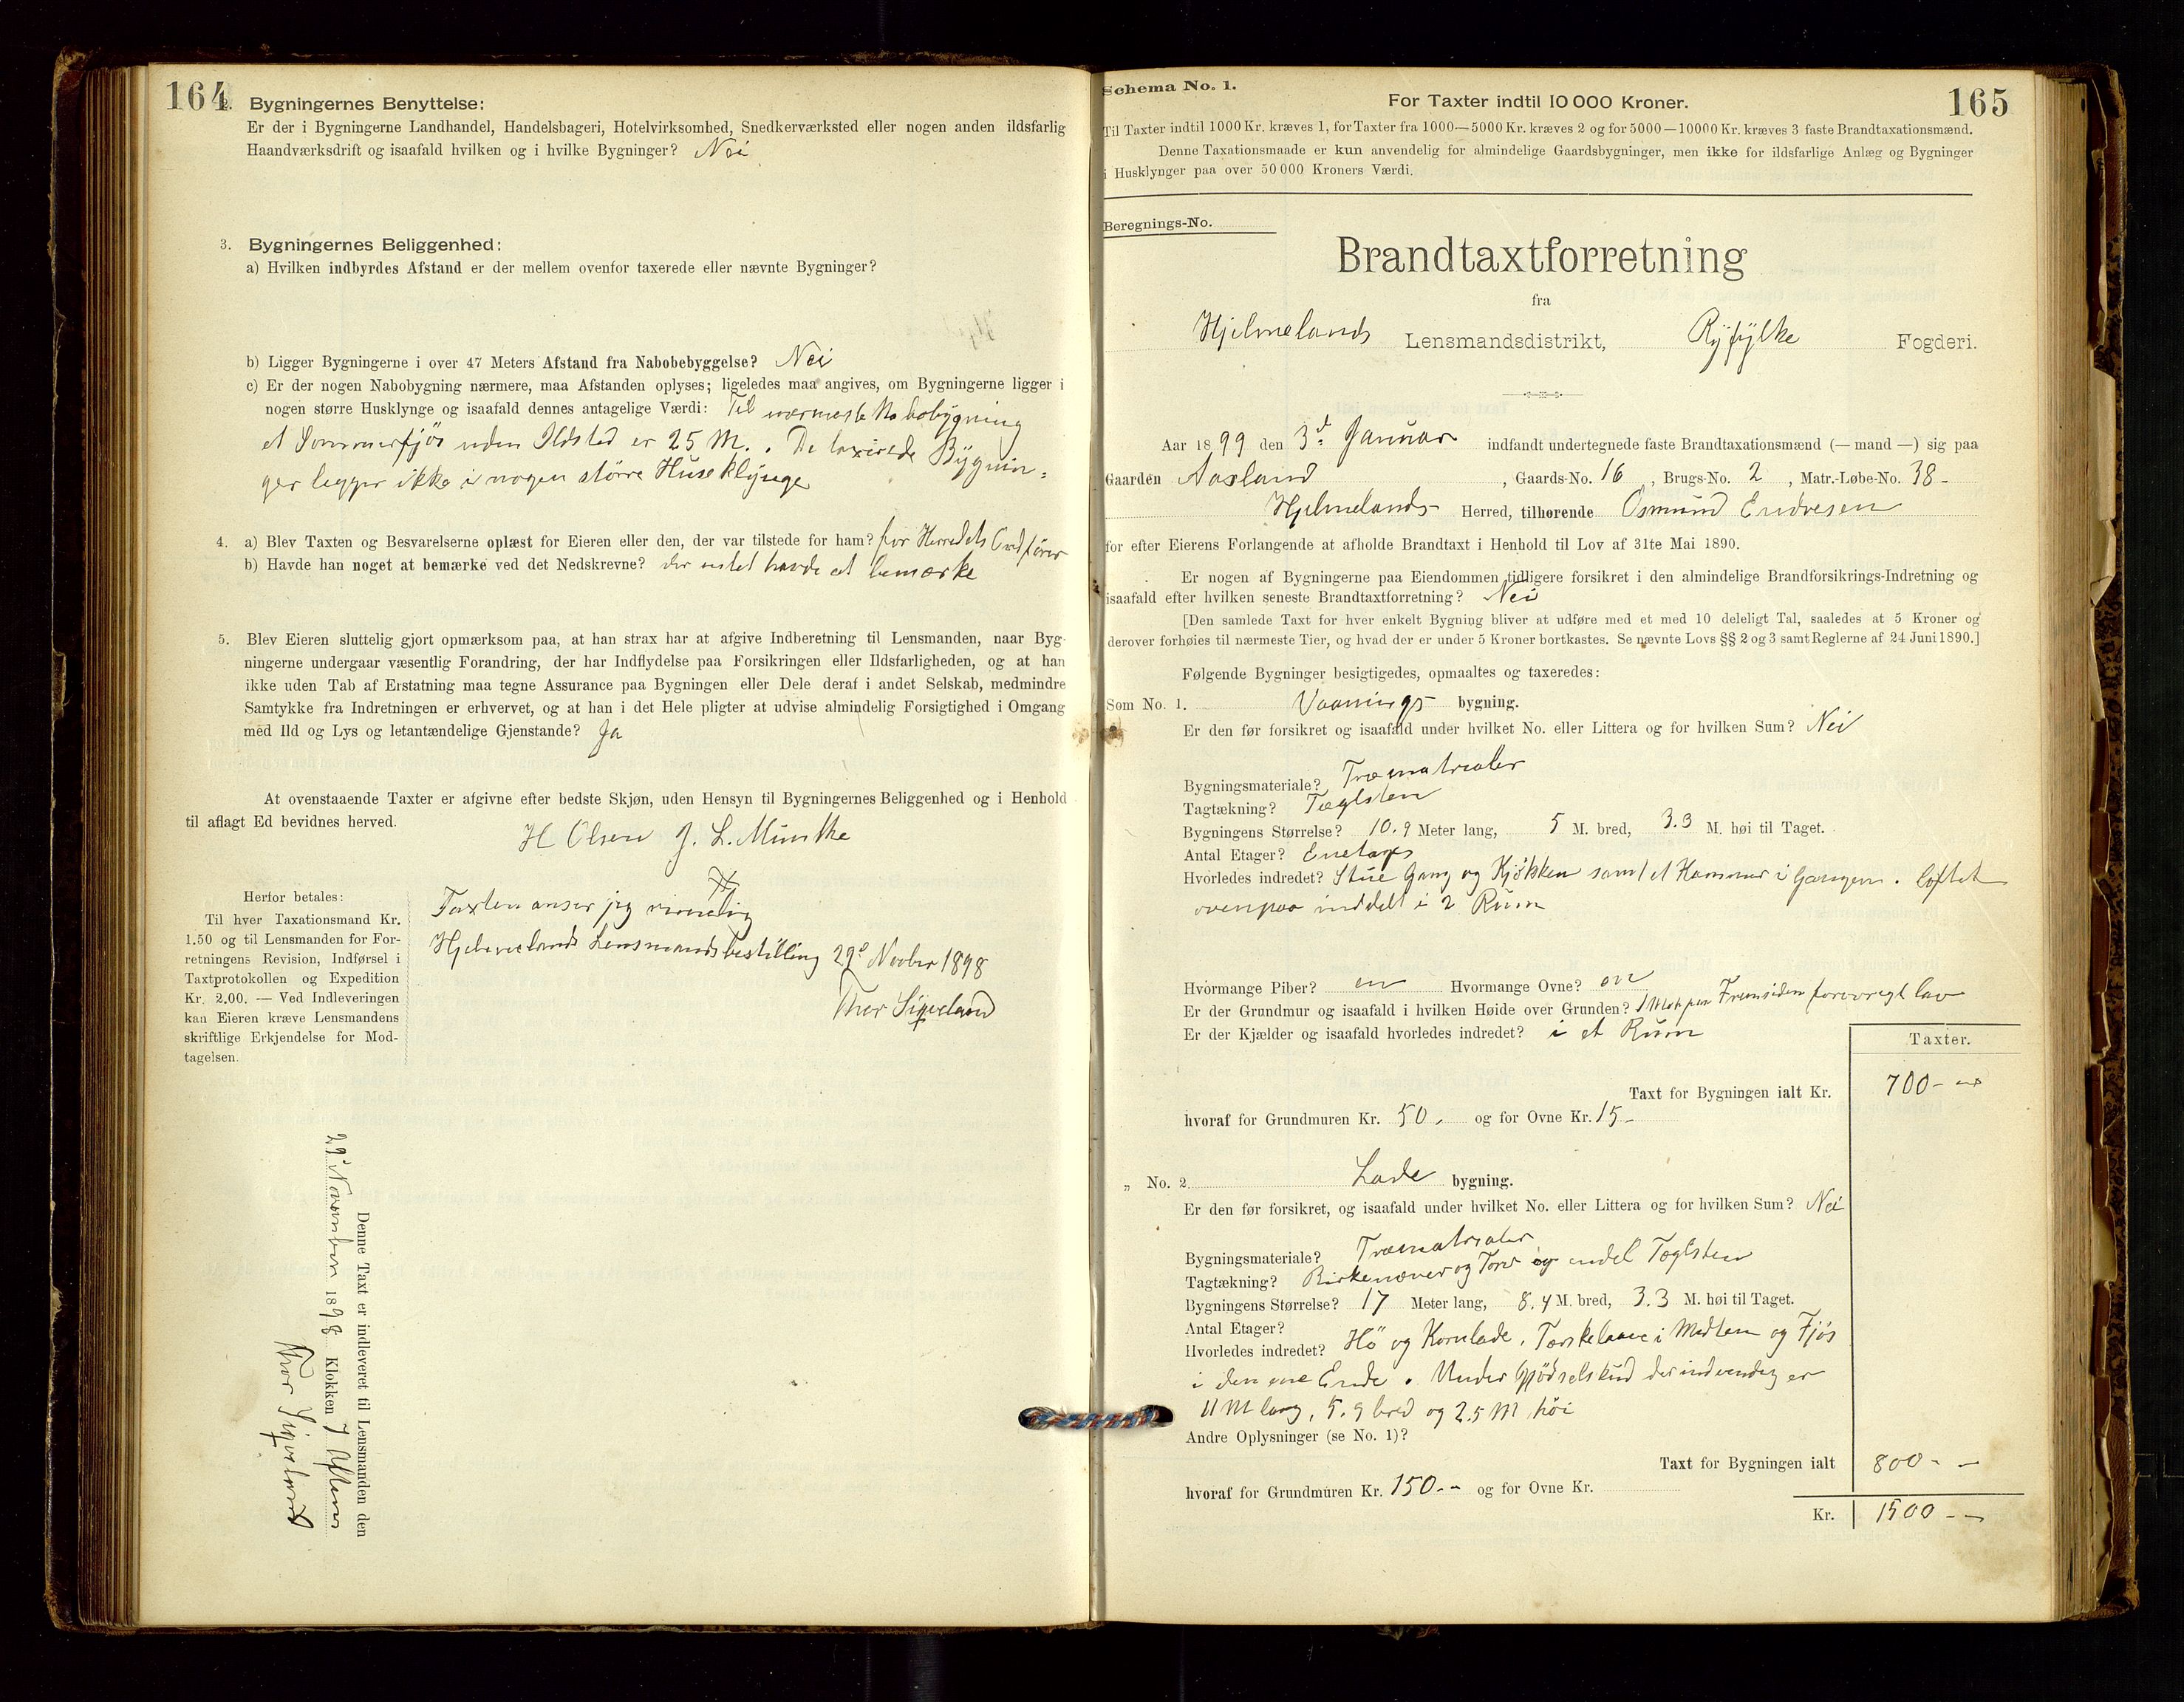 164
2. Bygningernes Benyttelse:
Er der i Bygningerne Landhandel, Handelsbageri, Hotelvirksomhed, Snedkerværksted eller nogen anden ildsfarlig
Haandværksdrift og isaafald hvilken og i hvilke Bygninger? Nei
3. Bygningernes Beliggenhed:
a) Hvilken indbyrdes Afstand er der mellem ovenfor taxerede eller nævnte Bygninger?
b) Ligger Bygningerne i over 47 Meters Afstand fra Nabobebyggelse? Nei
c) Er der nogen Nabobygning nærmere, maa Afstanden oplyses; ligeledes maa angives, om Bygningerne ligger i
nogen større Husklynge og isaafald dennes antagelige Værdi: Til nærmeste Nabobygning
et Sommerfjøs uden Ildsted er 25 M.. De taxerede Bygnin=
ger legger ikke i nogen större Huseklynge
4. a) Blev Taxten og Besvarelserne oplæst for Eieren eller den, der var tilstede for ham? for Herredets Ordförer
b) Havde han noget at bemærke ved det Nedskrevne? der intet havde at bemærke
5. Blev Eieren sluttelig gjort opmærksom paa, at han strax har at afgive Indberetning til Lensmanden, naar Byg-
ningerne undergaar væsentlig Forandring, der har Indflydelse paa Forsikringen eller Ildsfarligheden, og at han
ikke uden Tab af Erstatning maa tegne Assurance paa Bygningen eller Dele deraf i andet Selskab, medmindre
Samtykke fra Indretningen er erhvervet, og at han i det Hele pligter at udvise almindelig Forsigtighed i Omgang
med Ild og Lys og letantændelige Gjenstande? Ja
At ovenstaaende Taxter er afgivne efter bedste Skjøn, uden Hensyn til Bygningernes Beliggenhed og i Henhold
til aflagt Ed bevidnes herved.
H Olsen J. L. Munthe
Herfor betales:
Til hver Taxationsmand Kr.
1.50 og til Lensmanden for For-
retningens Revision, Indførsel i
Taxtprotokollen og Expedition
Kr. 2.00. — Ved Indleveringen
kan Eieren kræve Lensmandens
skriftlige Erkjendelse for Mod-
tagelsen.
Taxten anser jeg rimelig
Hjelmelands Lensmandsbestilling 29d Novbr 1898
Thor Sigveland
Denne Taxt er indleveret til Lensmanden den
29d November 1898 Klokken 7 Aften
Thor Sigveland
Schema No. 1.
165
For Taxter indtil 10 000 Kroner.
Til Taxter indtil 1000 Kr. kræves 1, for Taxter fra 1000—5000 Kr. kræves 2 og for 5000—10000 Kr. kræves 3 faste Brandtaxationsmænd.
Denne Taxationsmaade er kun anvendelig for almindelige Gaardsbygninger, men ikke for ildsfarlige Anlæg og Bygninger
i Husklynger paa over 50 000 Kroners Værdi.
Beregnings-No.
Brandtaxtforretning
fra
Hjelmelands Lensmandsdistrikt, Ryfylke Fogderi.
Aar 1899 den 3d Januar indfandt undertegnede faste Brandtaxationsmænd (— mand —) sig paa
Gaarden Aasland, Gaards-No. 16, Brugs-No. 2, Matr.-Løbe-No. 38-
Hjelmelands Herred, tilhørende Osmund Endresen
for efter Eierens Forlangende at afholde Brandtaxt i Henhold til Lov af 31te Mai 1890.
Er nogen af Bygningerne paa Eiendommen tidligere forsikret i den almindelige Brandforsikrings-Indretning og
isaafald efter hvilken seneste Brandtaxtforretning? Nei
[Den samlede Taxt for hver enkelt Bygning bliver at udføre med et med 10 deleligt Tal, saaledes at 5 Kroner og
derover forhøies til nærmeste Tier, og hvad der er under 5 Kroner bortkastes. Se nævnte Lovs §§ 2 og 3 samt Reglerne af 24 Juni 1890.]
Følgende Bygninger besigtigedes, opmaaltes og taxeredes:
Som No. 1. Vaanings bygning.
Er den før forsikret og isaafald under hvilket No. eller Littera og for hvilken Sum? Nei
Bygningsmateriale? Træmatrialer
Tagtækning? Taglsten
Bygningens Størrelse? 10.9 Meter lang, 5 M. bred, 3.3 M. høi til Taget.
Antal Etager? Enetages
Hvorledes indredet? Stue Gang og Kjøkken samt et Kammer i Gangen. Loftet
ovenpaa inddelt i 2 Rum
Hvormange Piber? en Hvormange Ovne? en
Er der Grundmur og isaafald i hvilken Høide over Grunden? 1 Met paa Fremsiden forøvrigt lav
Er der Kjælder og isaafald hvorledes indredet? i et Rum
Taxter.
Taxt for Bygningen ialt Kr. 700-
hvoraf for Grundmuren Kr. 50, og for Ovne Kr. 15-
„ No. 2. Lade bygning.
Er den før forsikret, og isaafald under hvilket No. eller Littera og for hvilken Sum? Nei
Bygningsmateriale? Træmatrialer
Tagtækning? Birkenæver og Torv og endel Taglsten
Bygningens Størrelse? 17 Meter lang, 8.4 M. bred, 3.3 M. høi til Taget.
Antal Etager?
Hvorledes indredet? Hö og Kornlade, Tærskelaave i Midten og Fjös
i den ene Ende. Under Gjödselskud der indvendig er
11 M lang, 5.9 bred og 2.5 M höi
Andre Oplysninger (se No. 1)?
Taxt for Bygningen ialt 800- -
hvoraf for Grundmuren Kr. 150-- og for Ovne Kr.
Kr. 1500 - -